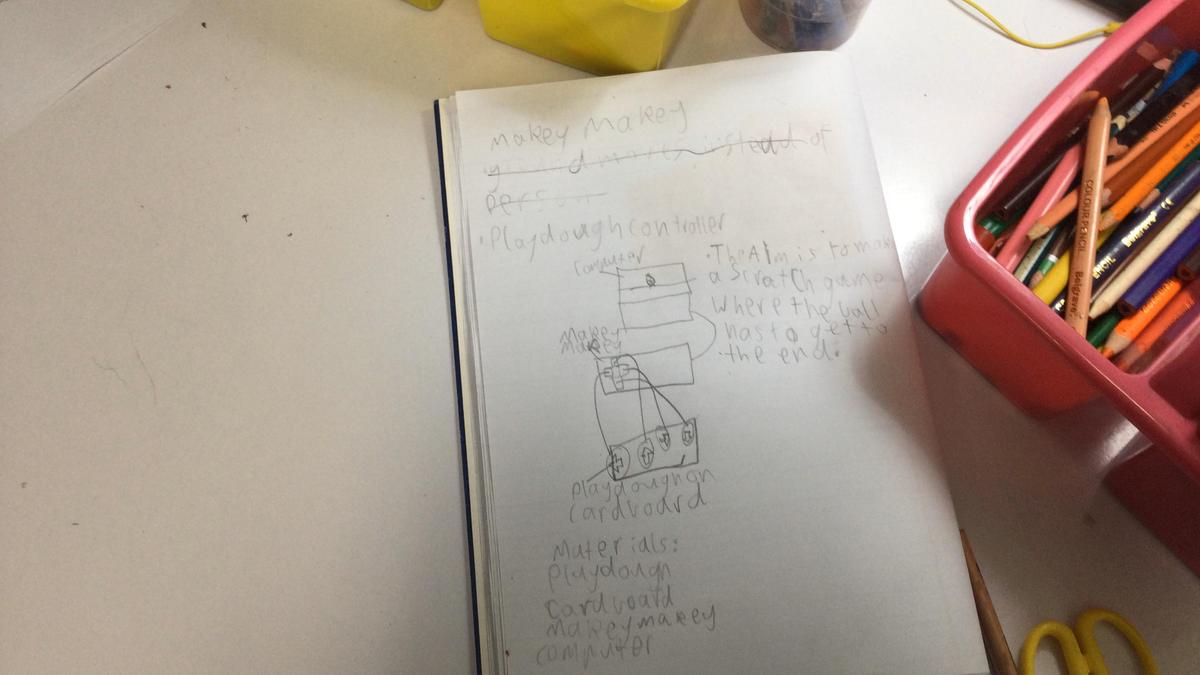 Makey Makey
instead of
person
• Playdough controller
computer
• The Aim is to make
a Scratch game
where the ball
has to get to
the end.
Makey
Makey
Playdough on
cardboard
Materials:
Playdough
cardboard
Makeymakey
computer
COLOUR PENCIL Belgrave
PENCIL Belgrave